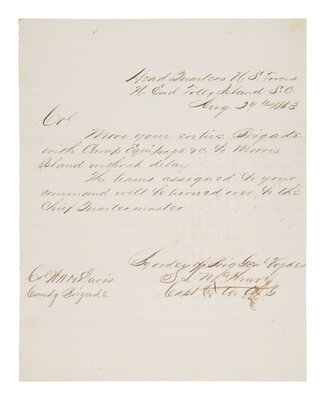 Head Quarters U.S. Forces
N. End Folly Island S.C
Aug 29th 1863
Col
Move your entire Brigade
with Camp Equipage &c to Morris
Island without delay.
The teams assigned to your
command will be turned over to the
Chief Quartermaster
By order of Brig Genl Vogdes
Col W.W.H. Davis
Comdg Brigade
Capt A. A. A. G